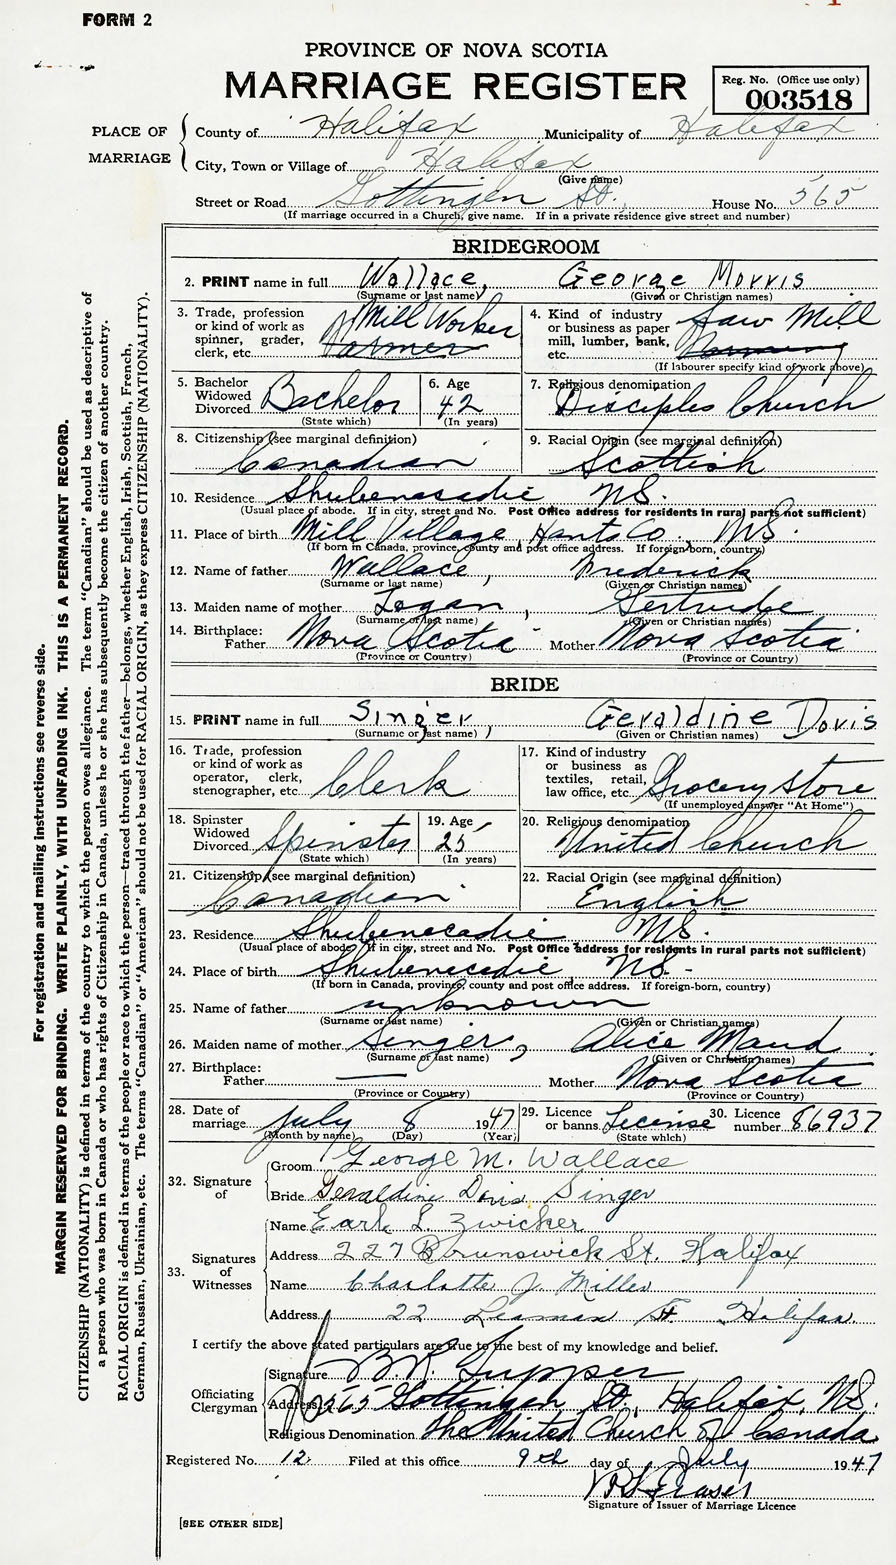 FORM 2
PROVINCE OF NOVA SCOTIA
MARRIAGE REGISTER
Reg. No. (Office use only)
003518
PLACE OF MARRIAGE
County of Halifax Municipality of Halifax
City, Town or Village of Halifax
(Give name)
Street or Road Gottingen St. House No. 565
(If marriage occurred in a Church, give name. If in a private residence give street and number)
BRIDEGROOM
2. PRINT name in full Wallace, George Morris
(Surname or last name) (Given or Christian names)
3. Trade, profession or kind of work as spinner, grader, clerk, etc. Mill Worker Farmer
4. Kind of industry or business as paper mill, lumber, bank, etc. Saw Mill Farming
(If labourer specify kind of work above)
5. Bachelor Widowed Divorced Bachelor
(State which)
6. Age 42
(In years)
7. Religious denomination Disciples Church
8. Citizenship (see marginal definition) Canadian
9. Racial Origin (see marginal definition) Scottish
10. Residence Shubenacadie NS.
(Usual place of abode. If in city, street and No. Post Office address for residents in rural parts not sufficient)
11. Place of birth Mill Village, Hants Co., NS.
(If born in Canada, province, county and post office address. If foreign-born, country)
12. Name of father Wallace, Frederick
(Surname or last name) (Given or Christian names)
13. Maiden name of mother Logan, Gertrude
(Surname or last name) (Given or Christian names)
14. Birthplace: Father Nova Scotia Mother Nova Scotia
(Province or Country) (Province or Country)
BRIDE
15. PRINT name in full Singer, Geraldine Doris
(Surname or last name) (Given or Christian names)
16. Trade, profession or kind of work as operator, clerk, stenographer, etc. Clerk
17. Kind of industry or business as textiles, retail, law office, etc. Grocery Store
(If unemployed answer "At Home")
18. Spinster Widowed Divorced Spinster
(State which)
19. Age 25
(In years)
20. Religious denomination United Church
21. Citizenship (see marginal definition) Canadian
22. Racial Origin (see marginal definition) English
23. Residence Shubenecadie NS.
(Usual place of abode. If in city, street and No. Post Office address for residents in rural parts not sufficient)
24. Place of birth Shubenecadie, NS.
(If born in Canada, province, county and post office address. If foreign-born, country)
25. Name of father unknown
(Surname or last name) (Given or Christian names)
26. Maiden name of mother Singer, Alice Maud
(Surname or last name) (Given or Christian names)
27. Birthplace: Father — Mother Nova Scotia
(Province or Country) (Province or Country)
28. Date of marriage July 8 1947
(Month by name) (Day) (Year)
29. Licence or banns License
(State which)
30. Licence number 86937
32. Signature of
Groom George M. Wallace
Bride Geraldine Doris Singer
33. Signatures of Witnesses
Name Earl L. Zwicker
Address 227 Brunswick St. Halifax
Name Charlotte J. Miller
Address 22 Leaman St. Halifax
I certify the above stated particulars are true to the best of my knowledge and belief.
Officiating Clergyman
Signature Tupper
Address 565 Gottingen St., Halifax, NS.
Religious Denomination The United Church of Canada
Registered No. 12 Filed at this office 9th day of July 1947
Fraser
Signature of Issuer of Marriage Licence
[SEE OTHER SIDE]
For registration and mailing instructions see reverse side.
MARGIN RESERVED FOR BINDING. WRITE PLAINLY, WITH UNFADING INK. THIS IS A PERMANENT RECORD.
CITIZENSHIP (NATIONALITY) is defined in terms of the country to which the person owes allegiance. The term "Canadian" should be used as descriptive of
a person who was born in Canada or who has rights of Citizenship in Canada, unless he or she has subsequently become the citizen of another country.
RACIAL ORIGIN is defined in terms of the people or race to which the person—traced through the father—belongs, whether English, Irish, Scottish, French,
German, Russian, Ukrainian, etc. The terms "Canadian" or "American" should not be used for RACIAL ORIGIN, as they express CITIZENSHIP (NATIONALITY).